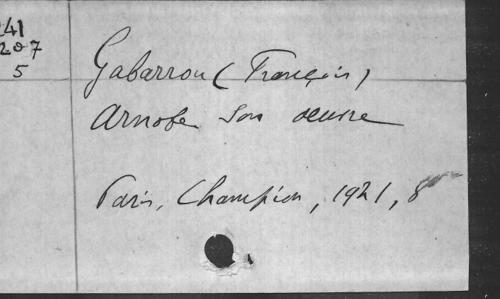 241
207
5
Gabarrou (François)
Arnobe son œuvre
Paris, Champion, 1921, 8°